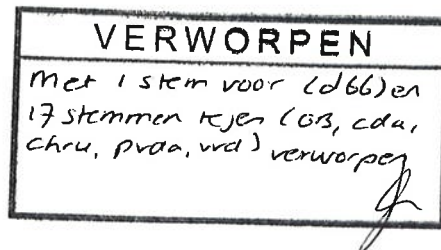 VERWORPEN
met 1 stem voor (d66) en
17 stemmen tejen (GB, cda,
chru, pvda, vvd) verworpen